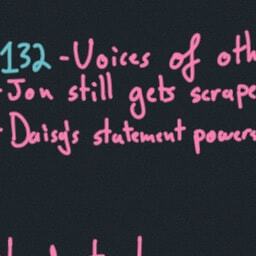 132 - Voices of oth
- Jon still gets scrape
- Daisy's statement powers